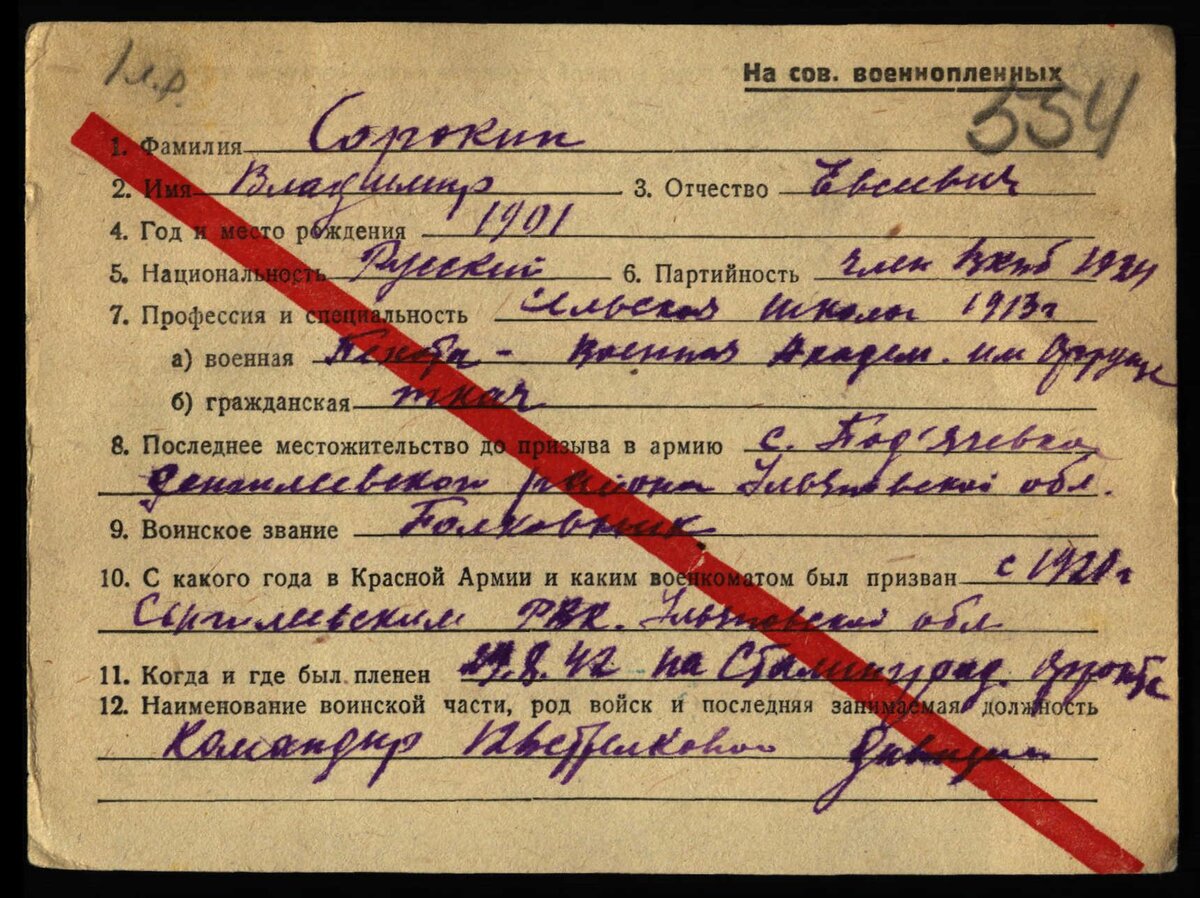 На сов. военнопленных
554
1. Фамилия Сорокин
2. Имя Владимир 3. Отчество Евсеевич
4. Год и место рождения 1901
5. Национальность Русский 6. Партийность член ВКПб 1924
7. Профессия и специальность сельская школа 1913г
а) военная Пехота - Военная Академ. им Фрунзе
б) гражданская ткач
8. Последнее местожительство до призыва в армию с.
района Ульяновской обл.
9. Воинское звание Полковник
10. С какого года в Красной Армии и каким военкоматом был призван с 1920г
РВК. Ульяновской обл
11. Когда и где был пленен 29.8.42 на Сталинград. фронте
12. Наименование воинской части, род войск и последняя занимаемая должность
Командир стрелковой дивизии